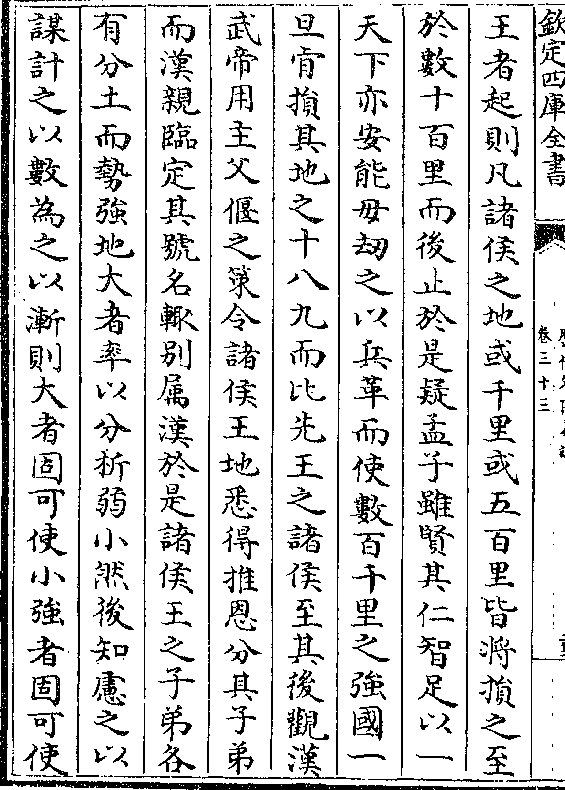 欽定四庫全書
卷三十三
王者起則凡諸侯之地或千里或五百里皆將損之至
於數十百里而後止於是疑孟子雖賢其仁智足以一
天下亦安能毋劫之以兵革而使數百千里之強國一
旦肯損其地之十八九而比先王之諸侯至其後觀漢
武帝用主父偃之策令諸侯王地悉得推恩分其子弟
而漢親臨定其號名輙别属漢於是諸侯王之子弟各
有分土而勢強地大者率以分析弱小然後知慮之以
謀計之以數為之以漸則大者固可使小強者固可使